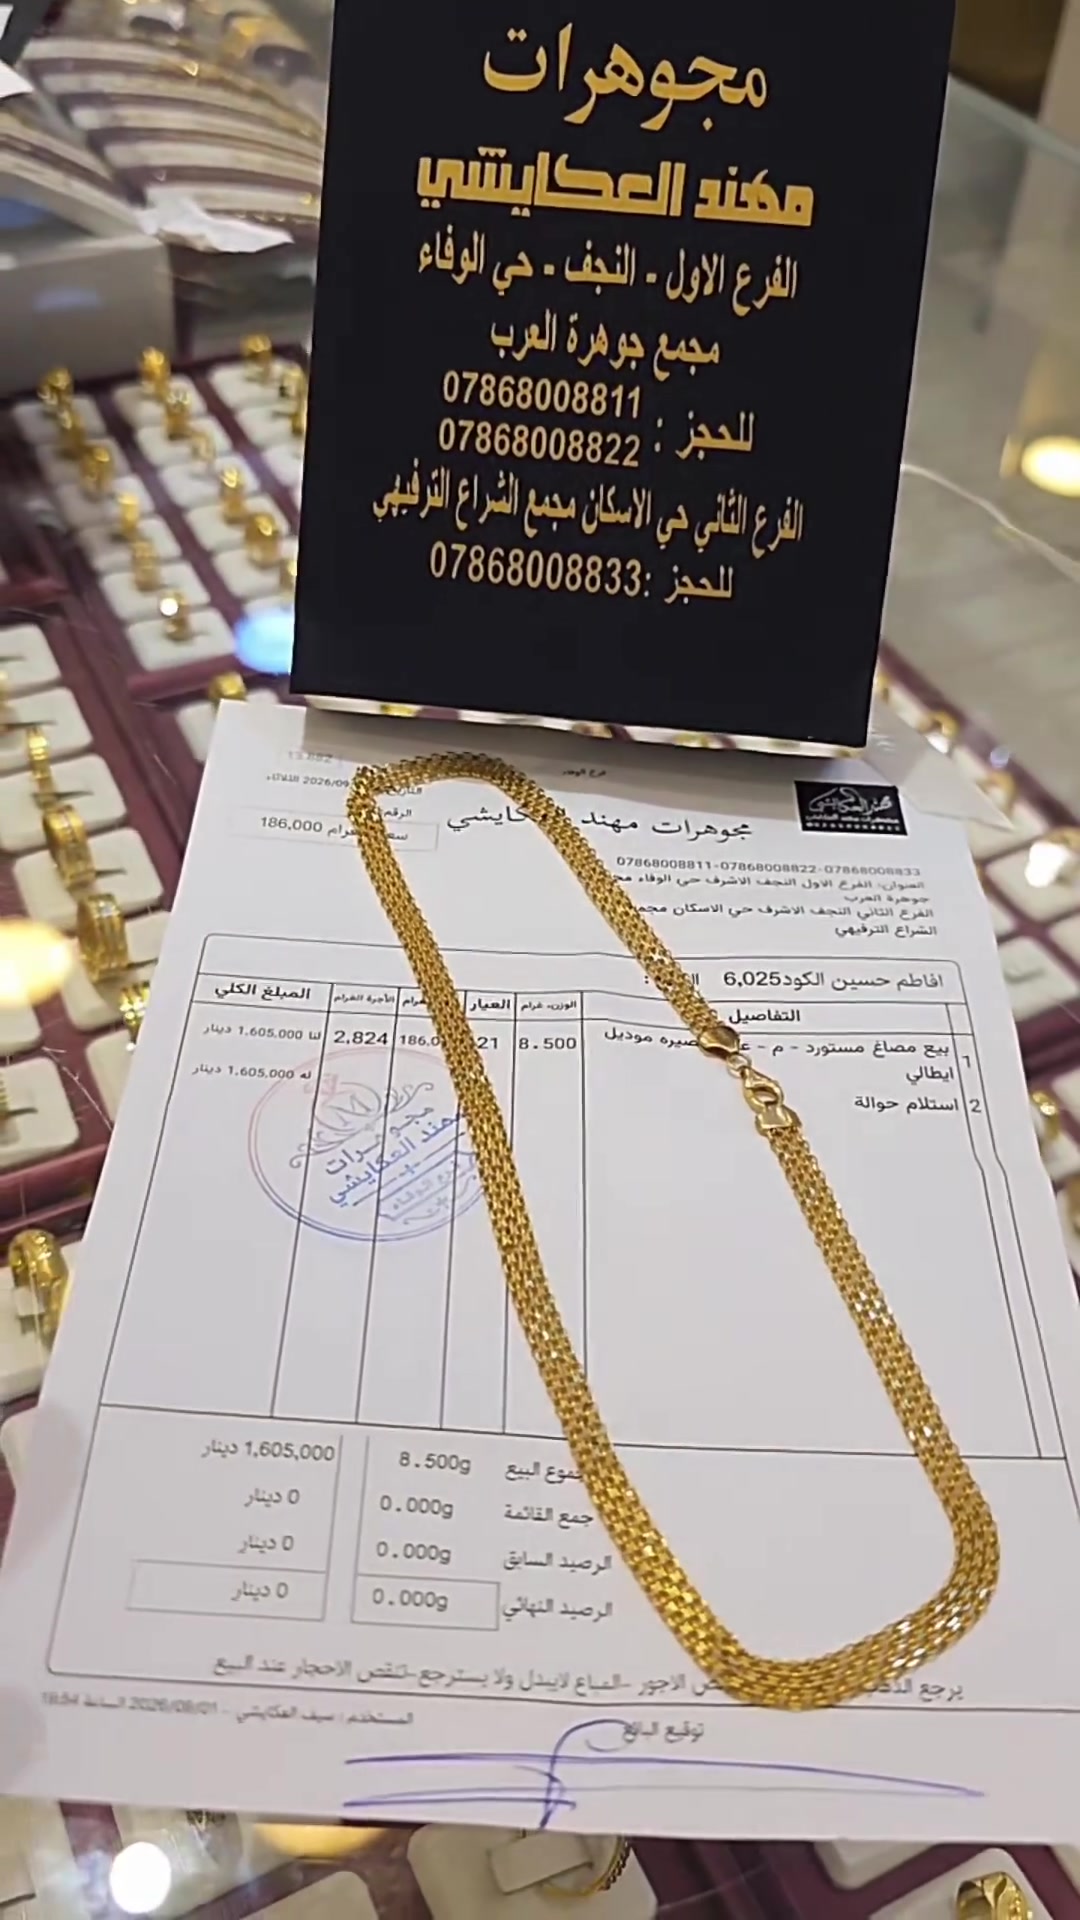 مجوهرات
مهند العكايشي
الفرع الاول - النجف - حي الوفاء
مجمع جوهرة العرب
07868008811
للحجز :
07868008822
الفرع الثاني حي الاسكان مجمع الشراع الترفيهي
للحجز :07868008833
13.882
فرع الوفاء
2026/09 الثلاثاء
الرقم
186,000
مجوهرات مهند العكايشي
07868008811-07868008822-07868008833
العنوان: الفرع الاول النجف الاشرف حي الوفاء
جوهرة العرب
الفرع الثاني النجف الاشرف حي الاسكان
الشراع الترفيهي
افاطم حسين الكود6,025
التفاصيل الوزن- غرام العيار الأجرة الغرام المبلغ الكلي
1 بيع مصاغ مستورد - م - موديل 8.500 21 186.0 2,824 لنا 1.605.000 دينار
ايطالي
2 استلام حوالة له 1.605.000 دينار
مجوهرات
مهند العكايشي
فرع الوفاء
البيع 8.500g 1,605,000 دينار
جمع القائمة 0.000g 0 دينار
الرصيد السابق 0.000g 0 دينار
الرصيد النهائي 0.000g 0 دينار
يرجع الاجور -المباع لايبدل ولا يسترجع-تنقص الاحجار عند البيع
المستخدم : سيف العكايشي - 2026/09/01 الساعة
توقيع البائع